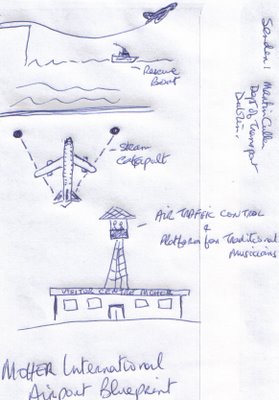 Rescue
Boat
Steam
Catapult
AIR TRAFFIC CONTROL
&
Platform for Traditional
Musicians
VISITOR CENTRE MOHER
MOHER International
Airport Blueprint
Sender: Martin Cullen
Dept of Transport
Dublin.